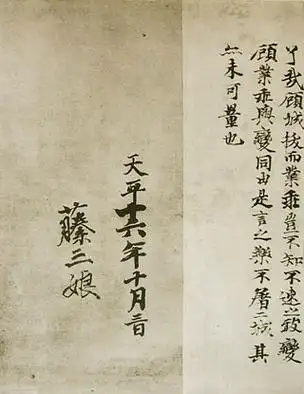 了哉顧城拔而業乖豈不知不速之致變
顧業乖與變同由是言之樂不屠二城其
亦未可量也
天平十六年十月三日
藤三娘